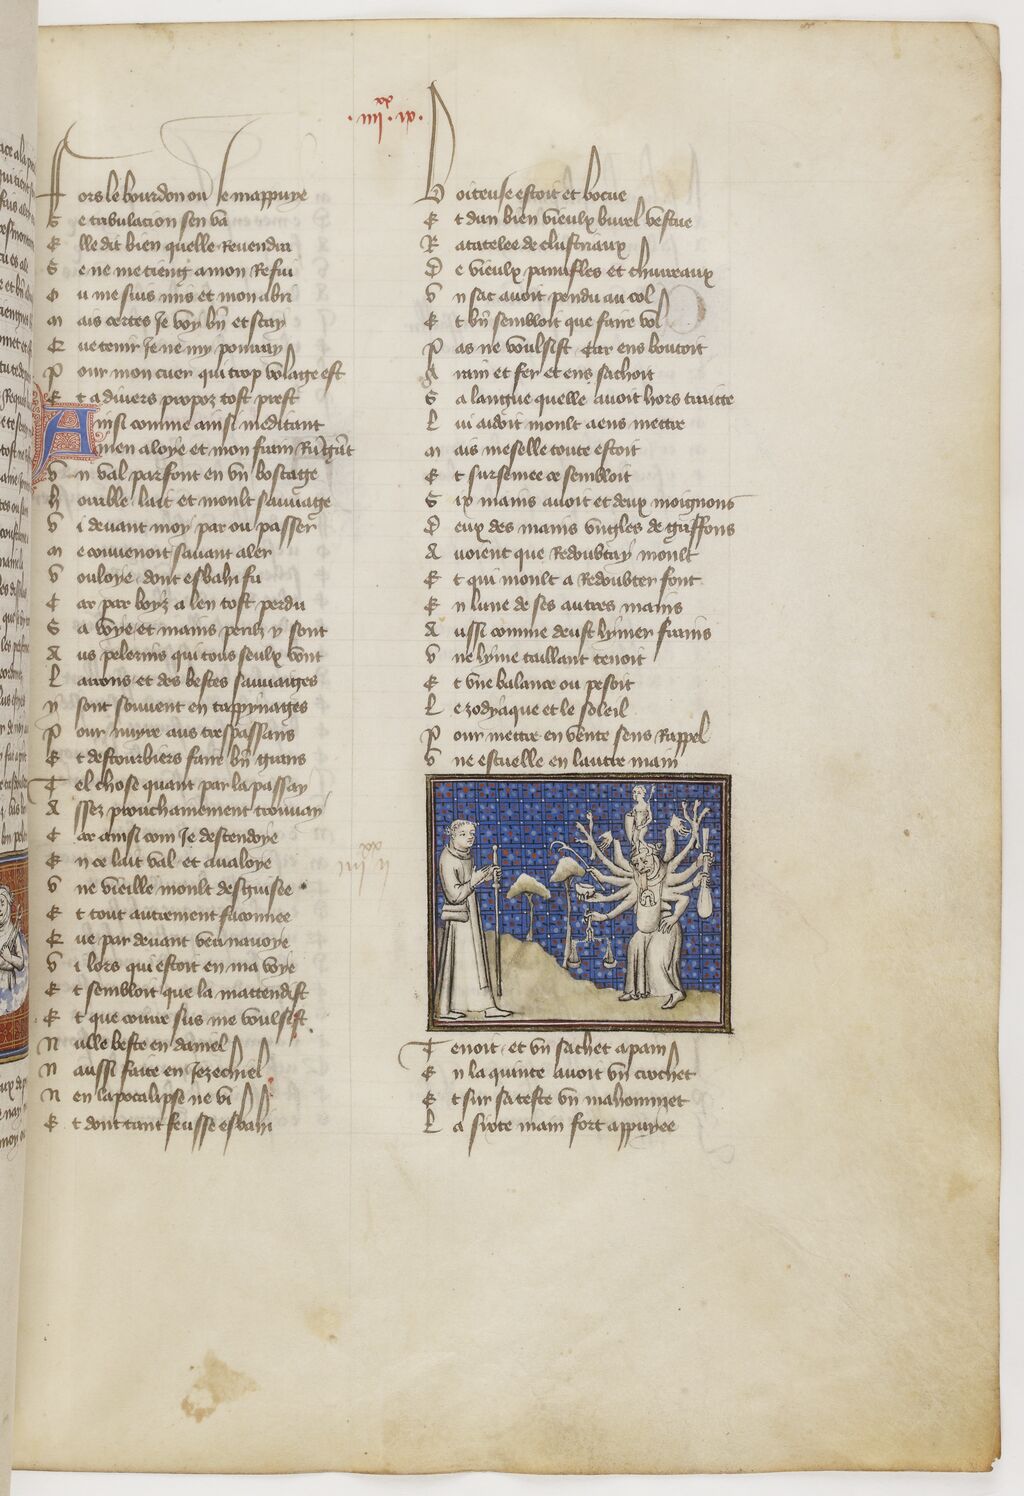 Fors le bourdon ou je mappuye
Se tribulacion sen va
Elle dit bien quelle Revendra
Se ne me tieng a mon Refui
Ou me suis mis et mon abri
mais certes Je voy bn et scay
Que tenir Je ne my pourray
Pour mon cuer qui trop volage est
Et a divers propoz tost prest
Ainsi comme ainsi meditant
Amen aloye et mon frain
vn val parfont en vn boscage
horrible lait et moult sauuage
Vi devant moy par ou passer
me conuenoit sauant aler
Vouloye dont esbahi fu
Car par boys a len tost perdu
Sa voye et mains perilz y sont
Aus pelerins qui tous seulx vont
Larrons et des bestes sauuaiges
y sont souuent en tappynages
Pour nuyre aus trespassans
Et destourbiers faire bn grans
Tel chose quant par la passay
Assez prouchainement trouuay
Car ainsi com Je descendoye
En ce lait val et aualoye
Vne vieille moult desguisee
Et tout autrement faconnee
Que par deuant veu nauoye
Vi lors qui estoit en ma voye
Et sembloit que la mattendist
Et que courre sus me voulsist
Nulle beste en daniel
Naussi faite en Jezechiel
Nen lapocalipse ne vi
Et dont tant feusse esbahi
.ix. iiii. xx
Boiteuse estoit et bocue
Et dun bien vieulx burel vestue
Ratatelee de clustriaux
De vieulx panufles et
Vn sac auoit pendu au col
Et bn sembloit que faire vol
Pas ne voulsist Car ens boutoit
Arain et fer et ens sachoit
Sa langue quelle auoit hors traitte
Lui aidoit moult a ens mettre
mais meselle toute estoit
Et sursemee ce sembloit
Six mains auoit et deux moignons
Deux des mains vngles de griffons
Auoient que Redoubtay moult
Et qui moult a Redoubter font
En lune de ses autres mains
Aussi comme deust lymer frains
Vne lyme taillant tenoit
Et vne balance ou pesoit
Le zodyaque et le soleil
Pour mettre en vente sens Rappel
Vne escuelle en lautre main
Tenoit et vn sachet a pain
En la quinte auoit vn crochet
Et sur sa teste vn mahommet
La sixte main fort appuyee